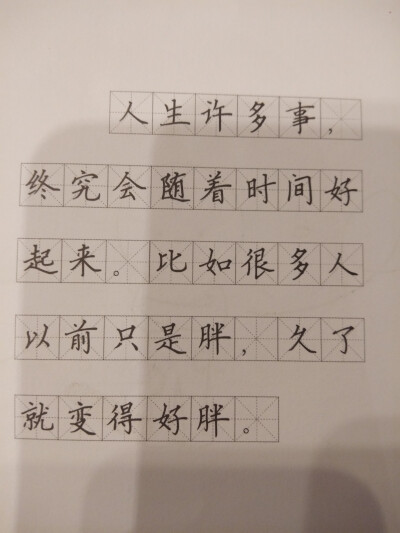 人生许多事，
终究会随着时间好
起来。比如很多人
以前只是胖，久了
就变得好胖。